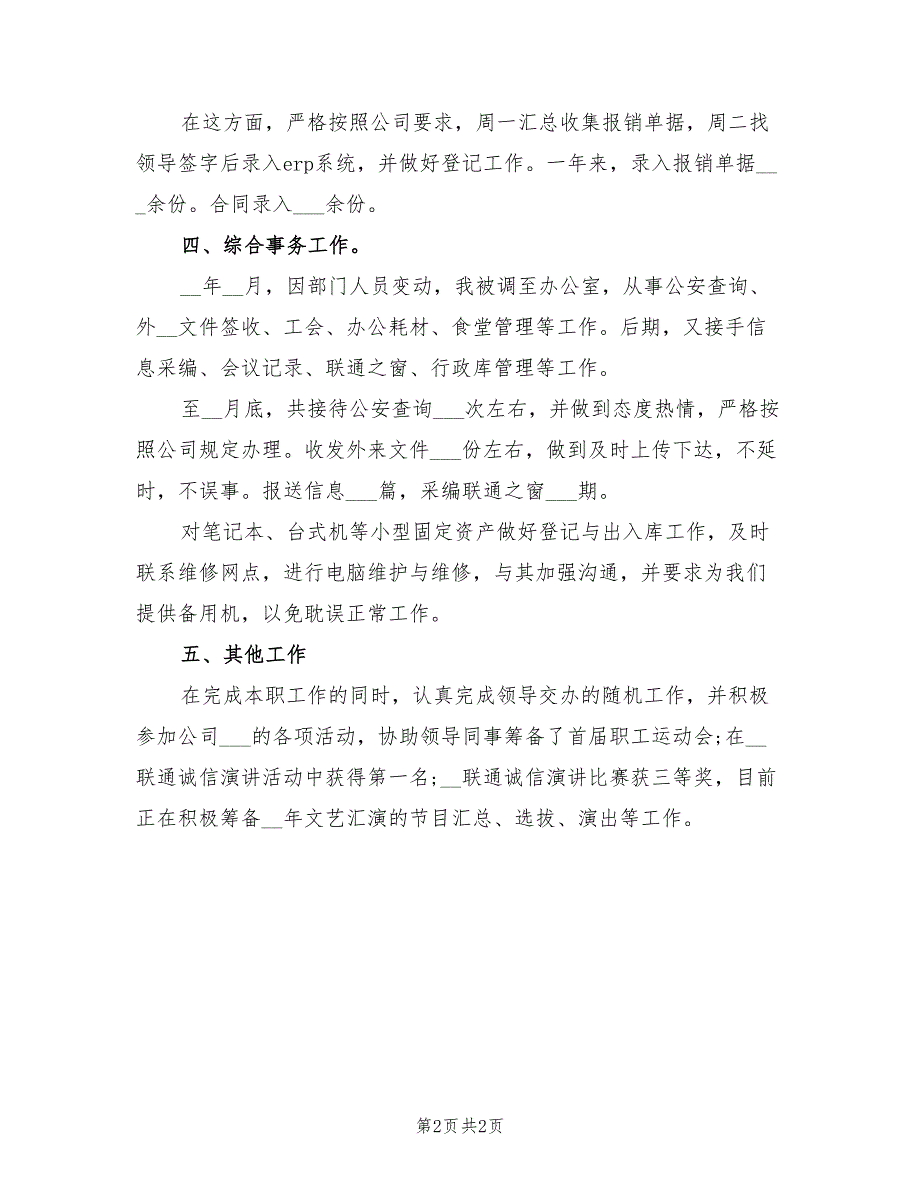 在这方面，严格按照公司要求，周一汇总收集报销单据，周二找
领导签字后录入erp系统，并做好登记工作。一年来，录入报销单据__
_余份。合同录入___余份。
四、综合事务工作。
__年__月，因部门人员变动，我被调至办公室，从事公安查询、
外__文件签收、工会、办公耗材、食堂管理等工作。后期，又接手信
息采编、会议记录、联通之窗、行政库管理等工作。
至__月底，共接待公安查询___次左右，并做到态度热情，严格按
照公司规定办理。收发外来文件___份左右，做到及时上传下达，不延
时，不误事。报送信息___篇，采编联通之窗___期。
对笔记本、台式机等小型固定资产做好登记与出入库工作，及时
联系维修网点，进行电脑维护与维修，与其加强沟通，并要求为我们
提供备用机，以免耽误正常工作。
五、其他工作
在完成本职工作的同时，认真完成领导交办的随机工作，并积极
参加公司___的各项活动，协助领导同事筹备了首届职工运动会;在__
联通诚信演讲活动中获得第一名;__联通诚信演讲比赛获三等奖，目前
正在积极筹备__年文艺汇演的节目汇总、选拔、演出等工作。
第2页 共2页